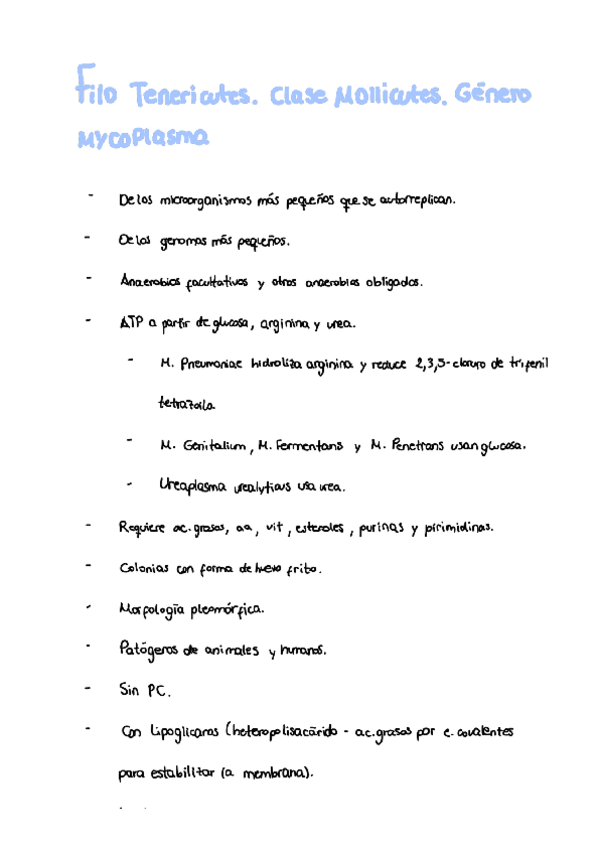 Filo Tenericutes. Clase Mollicutes. Género
Mycoplasma
- De los microorganismos más pequeños que se autorreplican.
- De los genomas más pequeños.
- Anaerobios facultativos y otros anaerobios obligados.
- ATP a partir de glucosa, arginina y urea.
- M. Pneumoniae hidroliza arginina y reduce 2,3,5-cloruro de trifenil
tetrazoila
- M. Genitalium, M. Fermentans y M. Penetrans usan glucosa.
- Ureaplasma urealyticus usa urea.
- Requiere ac. grasos, aa, vit, esteroles, purinas y pirimidinas.
- Colonias con forma de huevo frito.
- Morfología pleomórfica.
- Patógenos de animales y humanos.
- Sin PC.
- Con Lipoglicanos (heteropolisacárido - ac. grasos por e. covalentes
para estabilitar la membrana).